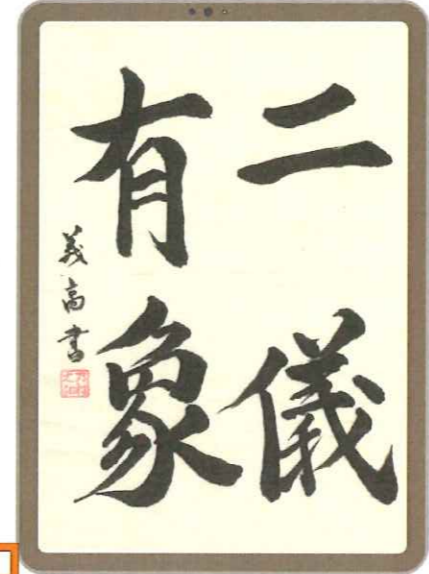 二儀
有象
義高書